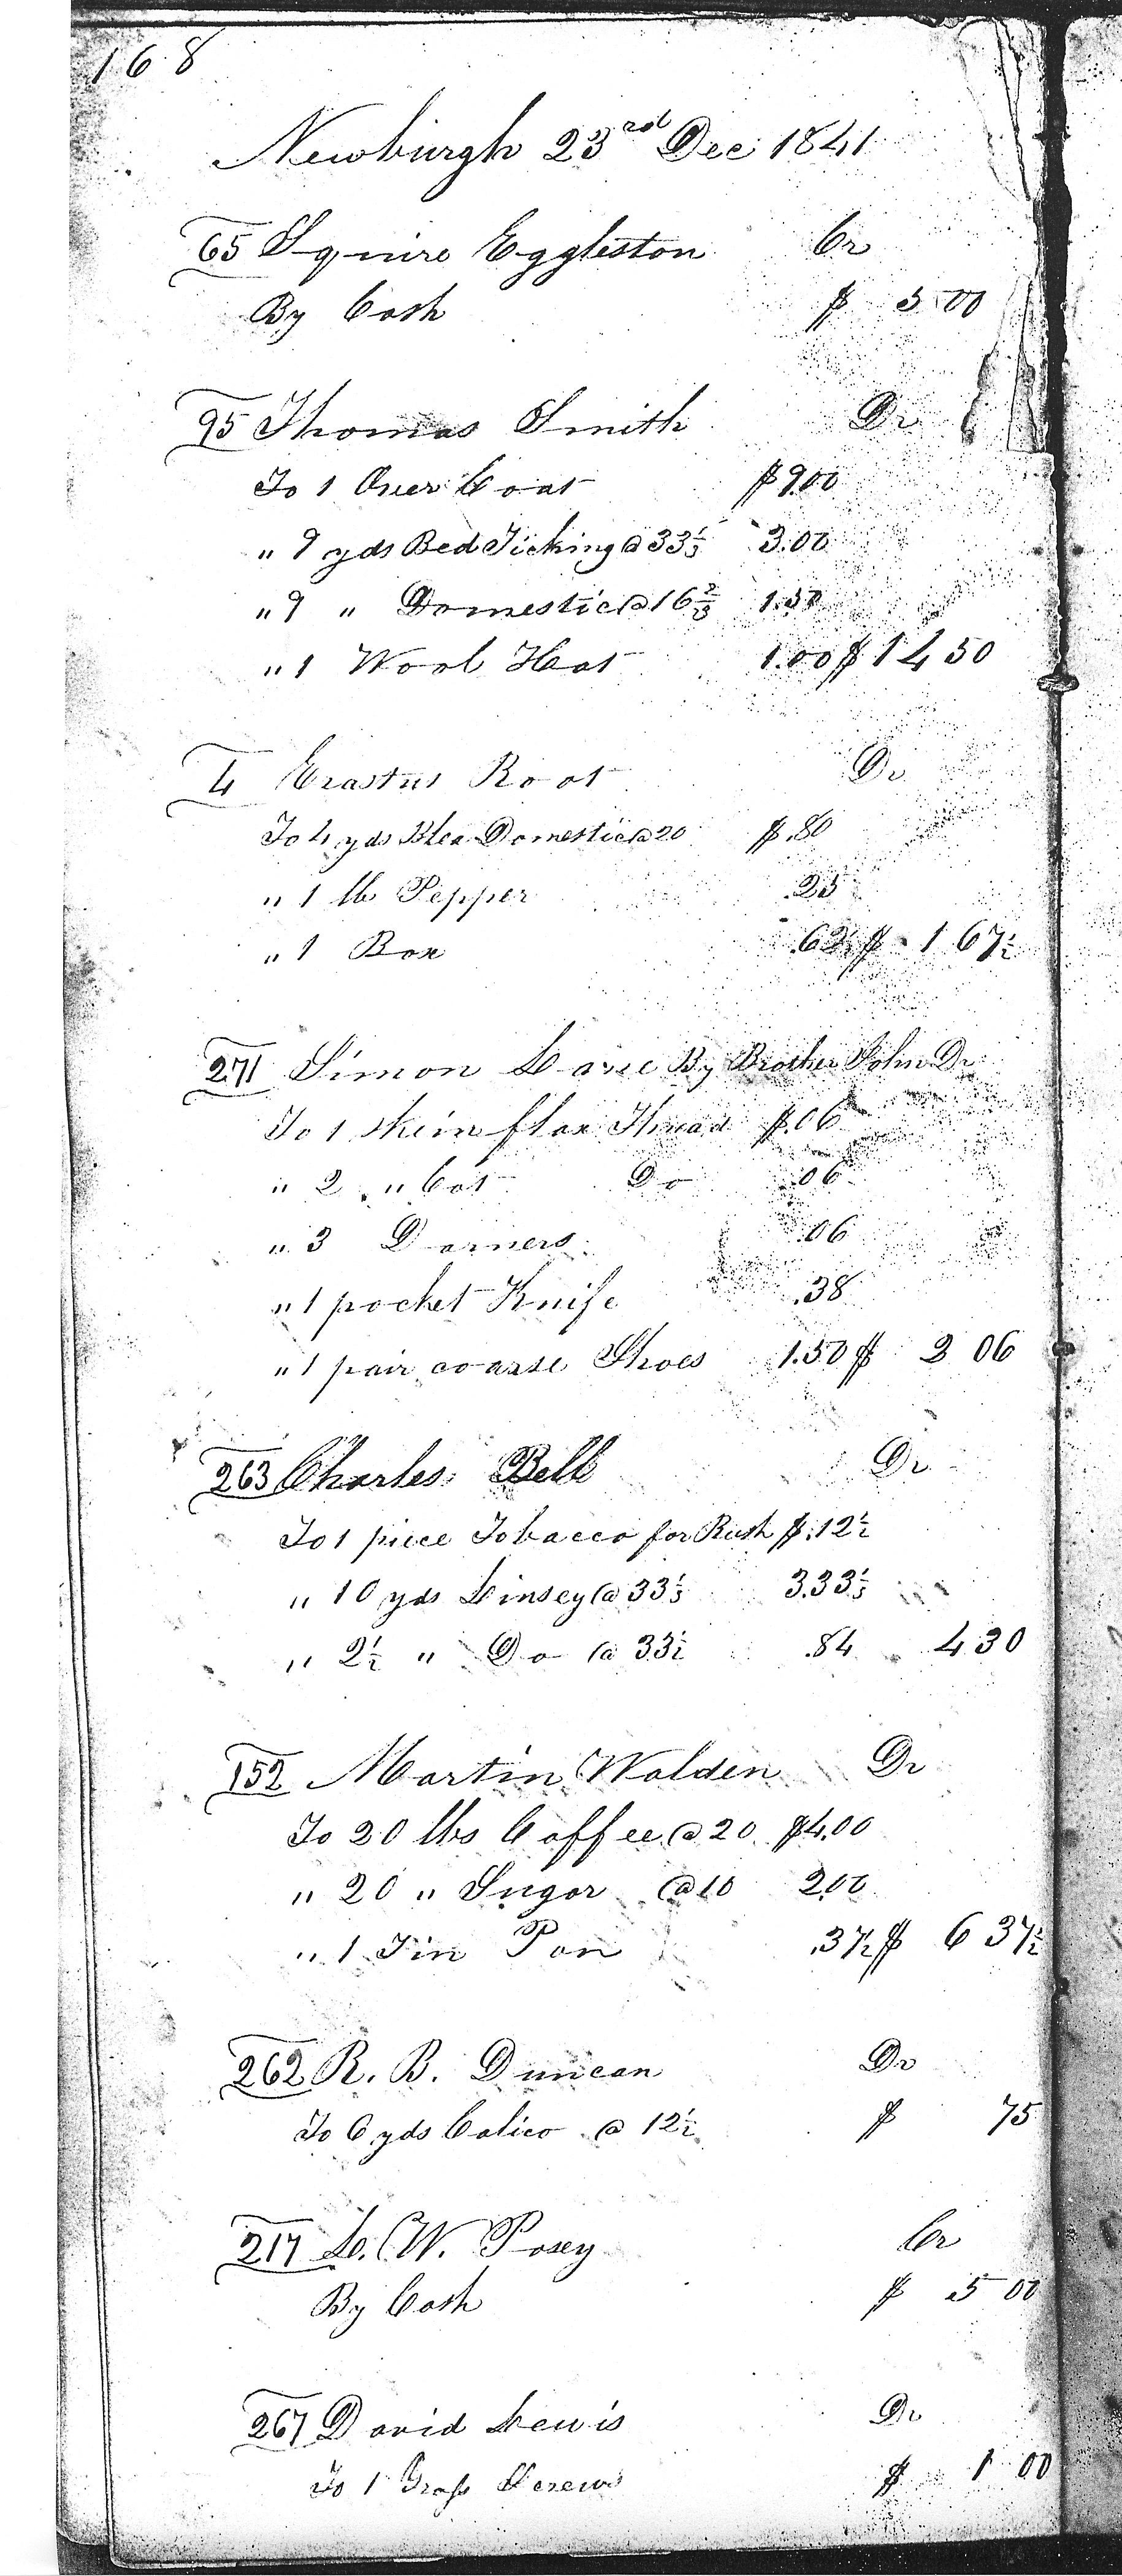 168
Newburgh 23rd Dec 1841
65 Squire Eggleston Cr
By Cash $ 5 00
95 Thomas Smith Dr
To 1 Over Coat $9.00
" 9 yds Bed Ticking @ 33⅓ 3.00
" 9 " Domestic @ 16⅔ 1.50
" 1 Wool Hat 1.00 $ 14 50
4 Erastus Root Dr
To 4 yds Blea Domestic @ 20 $ .80
" 1 lb Pepper .25
" 1 Box .62½ $ 1 67½
271 Simon By Brother John Dr
To 1 skein flax Thread $.06
" 2 " Cot Do .06
" 3 Darners .06
" 1 pocket Knife .38
" 1 pair coarse Shoes 1.50 $ 2 06
263 Charles Bell Dr
To 1 piece Tobacco for Rush $.12½
" 10 yds Linsey @ 33⅓ 3.33⅓
" 2½ " Do @ 33½ .84 4 30
152 Martin Walden Dr
To 20 lbs Coffee @ 20 $4.00
" 20 " Sugar @ 10 2.00
" 1 Tin Pan .37½ $ 6 37½
262 R. B. Duncan Dr
To 6 yds Calico @ 12½ $ 75
217 W. Posey Cr
By Cash $ 5 00
267 David Lewis Dr
To 1 Gross Screws $ 1 00